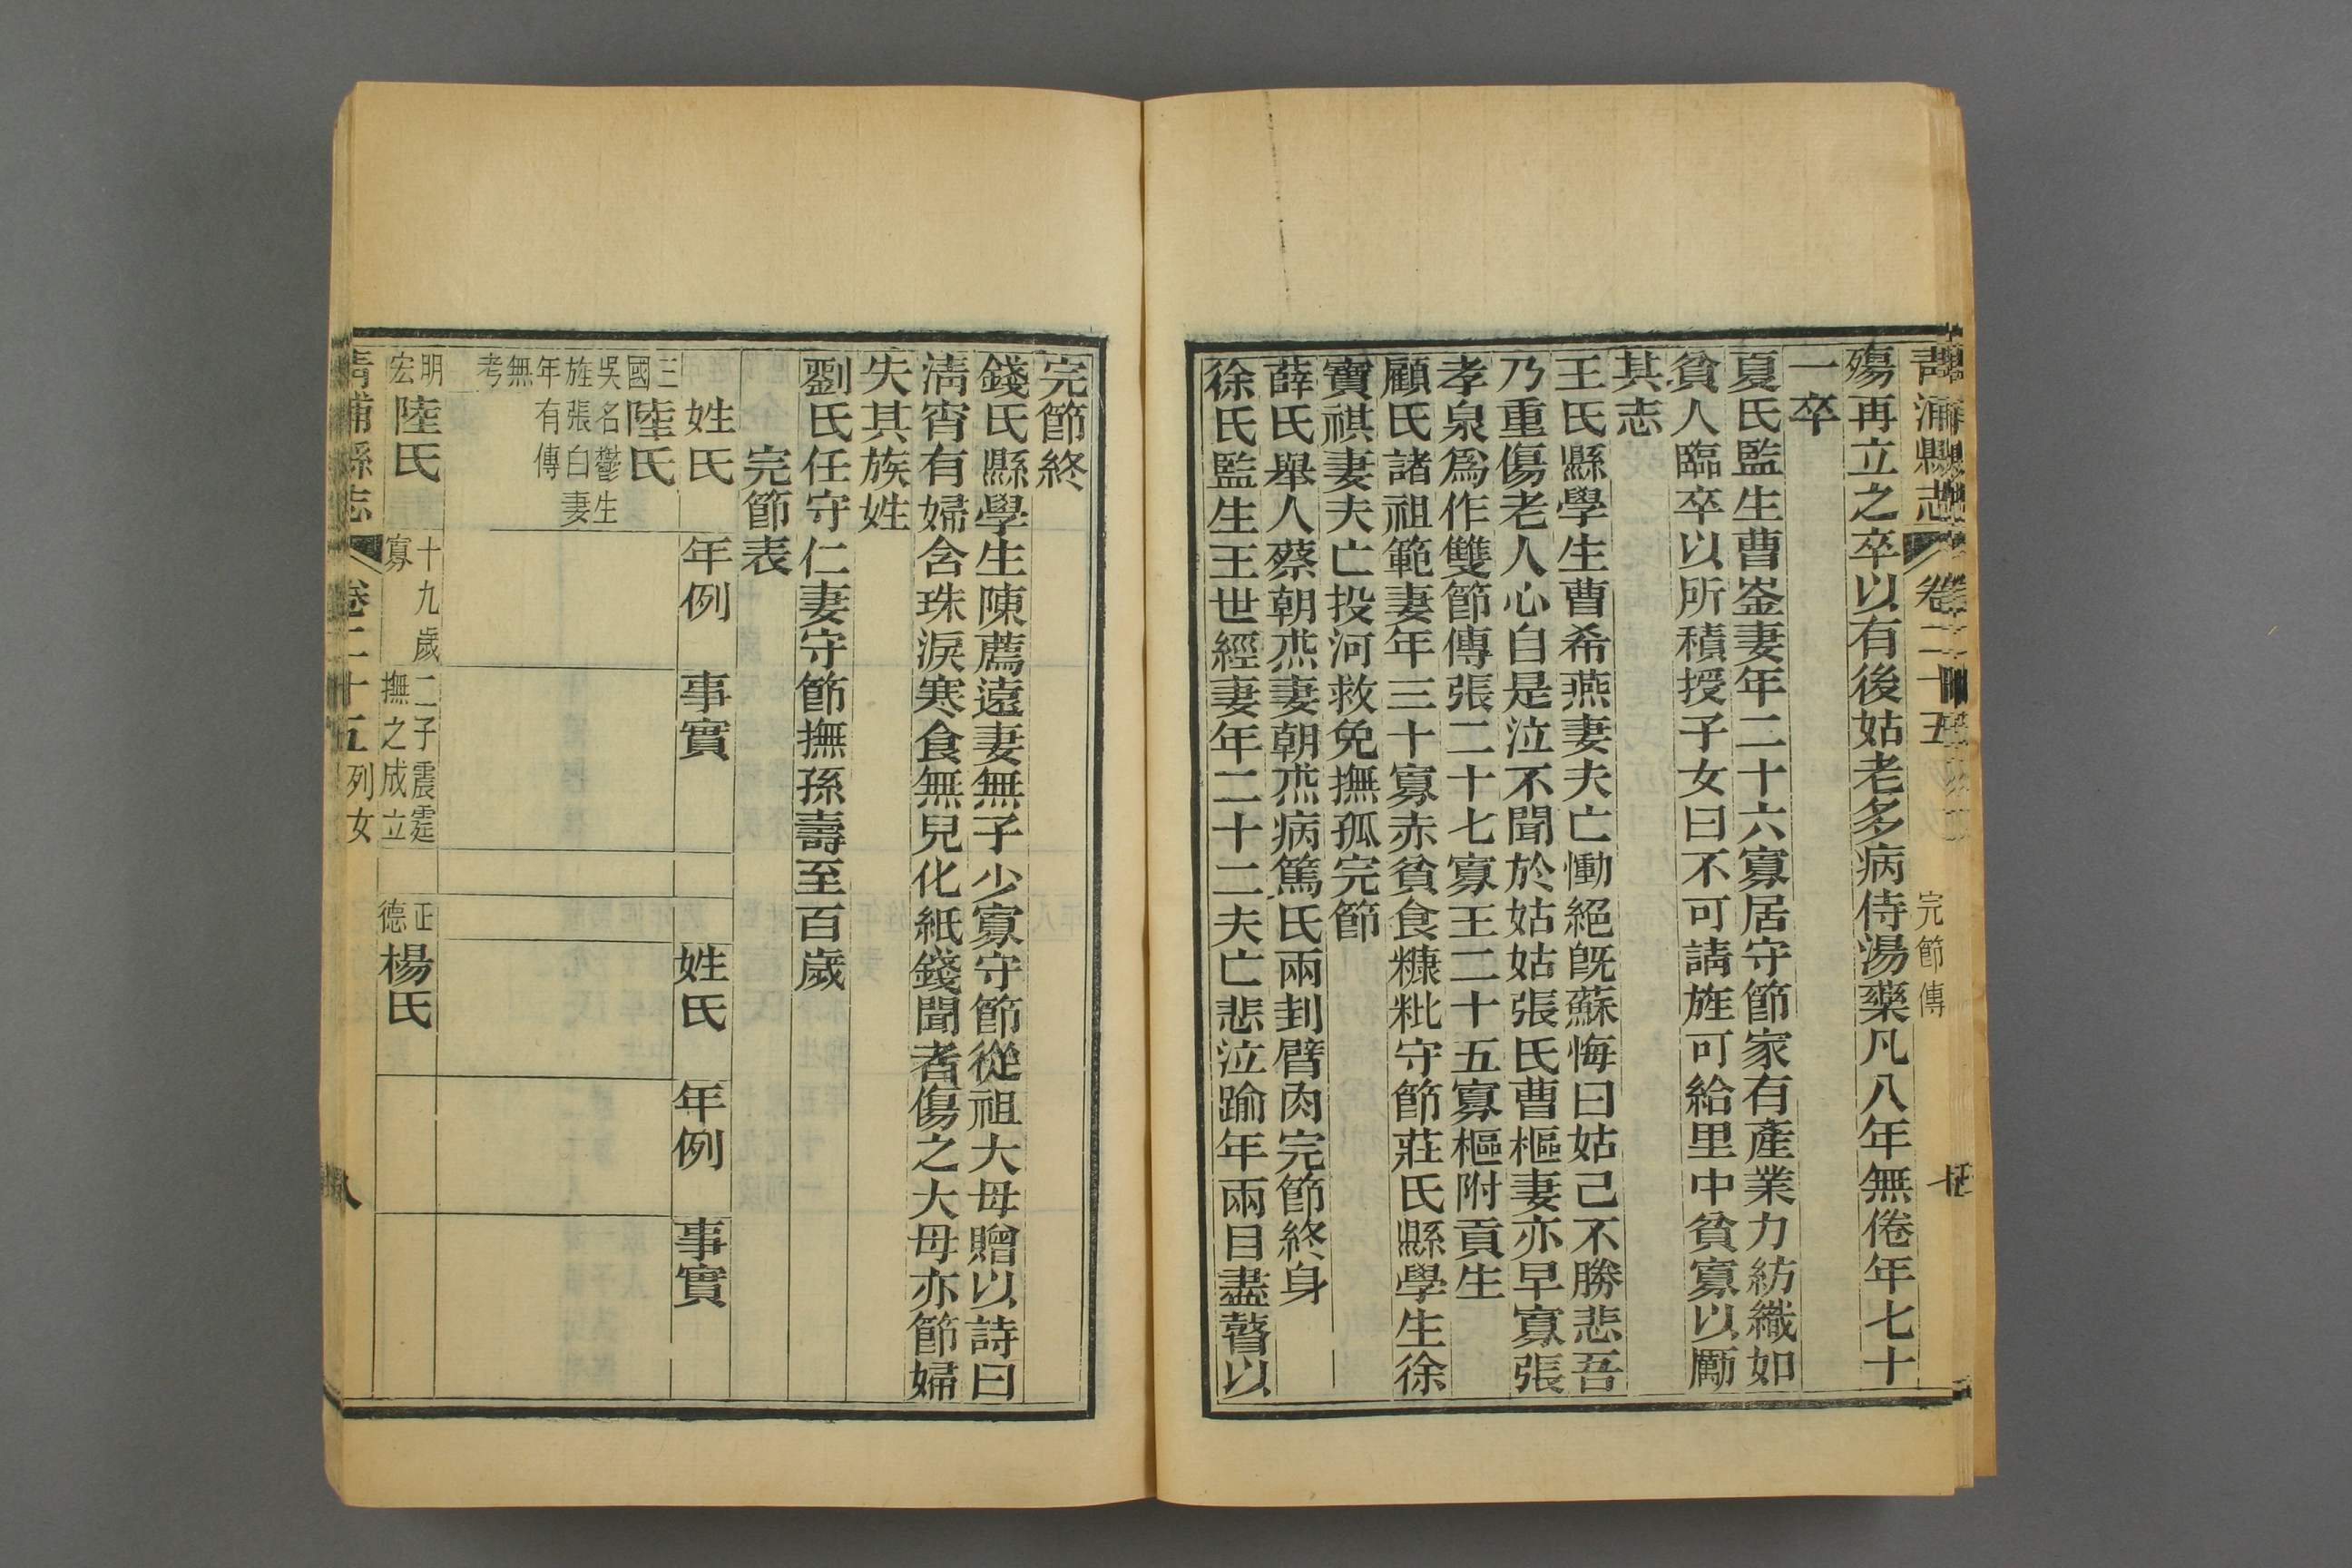 青浦縣志 卷二十五 完節傳
殤再立之卒以有後姑老多病侍湯藥凡八年無倦年七十
一卒
夏氏監生曹崟妻年二十六寡居守節家有產業力紡織如
貧人臨卒以所積授子女曰不可請旌可給里中貧寡以勵
其志
王氏縣學生曹希燕妻夫亡慟絕旣蘇悔曰姑己不勝悲吾
乃重傷老人心自是泣不聞於姑姑張氏曹樞妻亦早寡張
孝泉爲作雙節傳張二十七寡王二十五寡樞附貢生
顧氏諸祖範妻年三十寡赤貧食糠粃守節莊氏縣學生徐
寶祺妻夫亡投河救免撫孤完節
薛氏舉人蔡朝烝妻朝烝病篤氏兩刲臂肉完節終身
徐氏監生王世經妻年二十二夫亡悲泣踰年兩目盡瞽以
完節終
錢氏縣學生陳薦遠妻無子少寡守節從祖大母贈以詩曰
淸宵有婦含珠淚寒食無兒化紙錢聞者傷之大母亦節婦
失其族姓
劉氏任守仁妻守節撫孫壽至百歲
完節表
姓氏 年例 事實 姓氏 年例 事實
三國 陸氏
吳名鬱生
旌張白妻
年有傳
無
考
明宏 陸氏 十九歲寡 二子震霆撫之成立 正德 楊氏
青浦縣志 卷二十五 列女 八